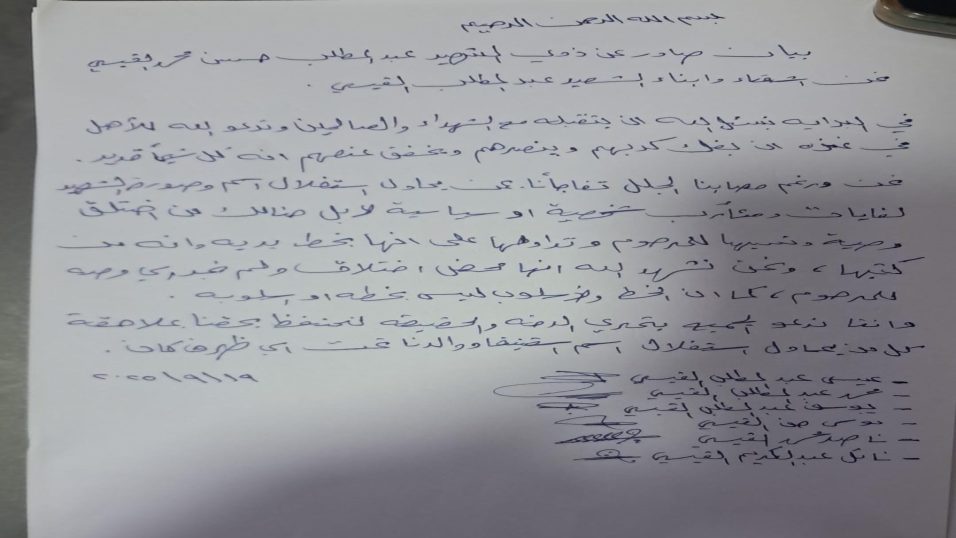 بسم الله الرحمن الرحيم
بيان صادر عن ذوي الشهيد عبد المطلب حسن محمد القيسي
نحن اشقاء وابناء الشهيد عبد المطلب القيسي .
في البداية نسئل الله ان يتقبله مع الشهداء والصالحين وندعو الله للأهل
في غزه ان يفك كربهم وينصرهم ويخفف عنهم انه على كل شيئاً قدير .
نحن ورغم مصابنا الجلل تفاجأنا من يحاول استغلال اسم وصورة الشهيد
لغايات ومئأرب شخصية او سياسية لا بل هنالك من اختلق
وصية ونسبها للمرحوم وتداولها على انها بخط يديه وانه من
كتبها ، ونحن نشهد الله انها محض اختلاق ولم ضد اي وصه
للمرحوم ، كما ان الخط والاسلوب ليس بخطه او اسلوبه .
واننا ندعو الجميع بتحري الدقه والحقيقه لنحتفظ بحقنا بملاحقة
كل من يحاول استغلال اسم شقيقنا ووالدنا تحت اي ظرف كان .
- عيسى عبد المطلب القيسي ٢٠٢٥/٩/١٩
- محمد عبد المطلب القيسي
- يوسف عبد المطلب القيسي
- موسى حسن القيسي
- ناصر محمد القيسي
- نائل عبد الكريم القيسي